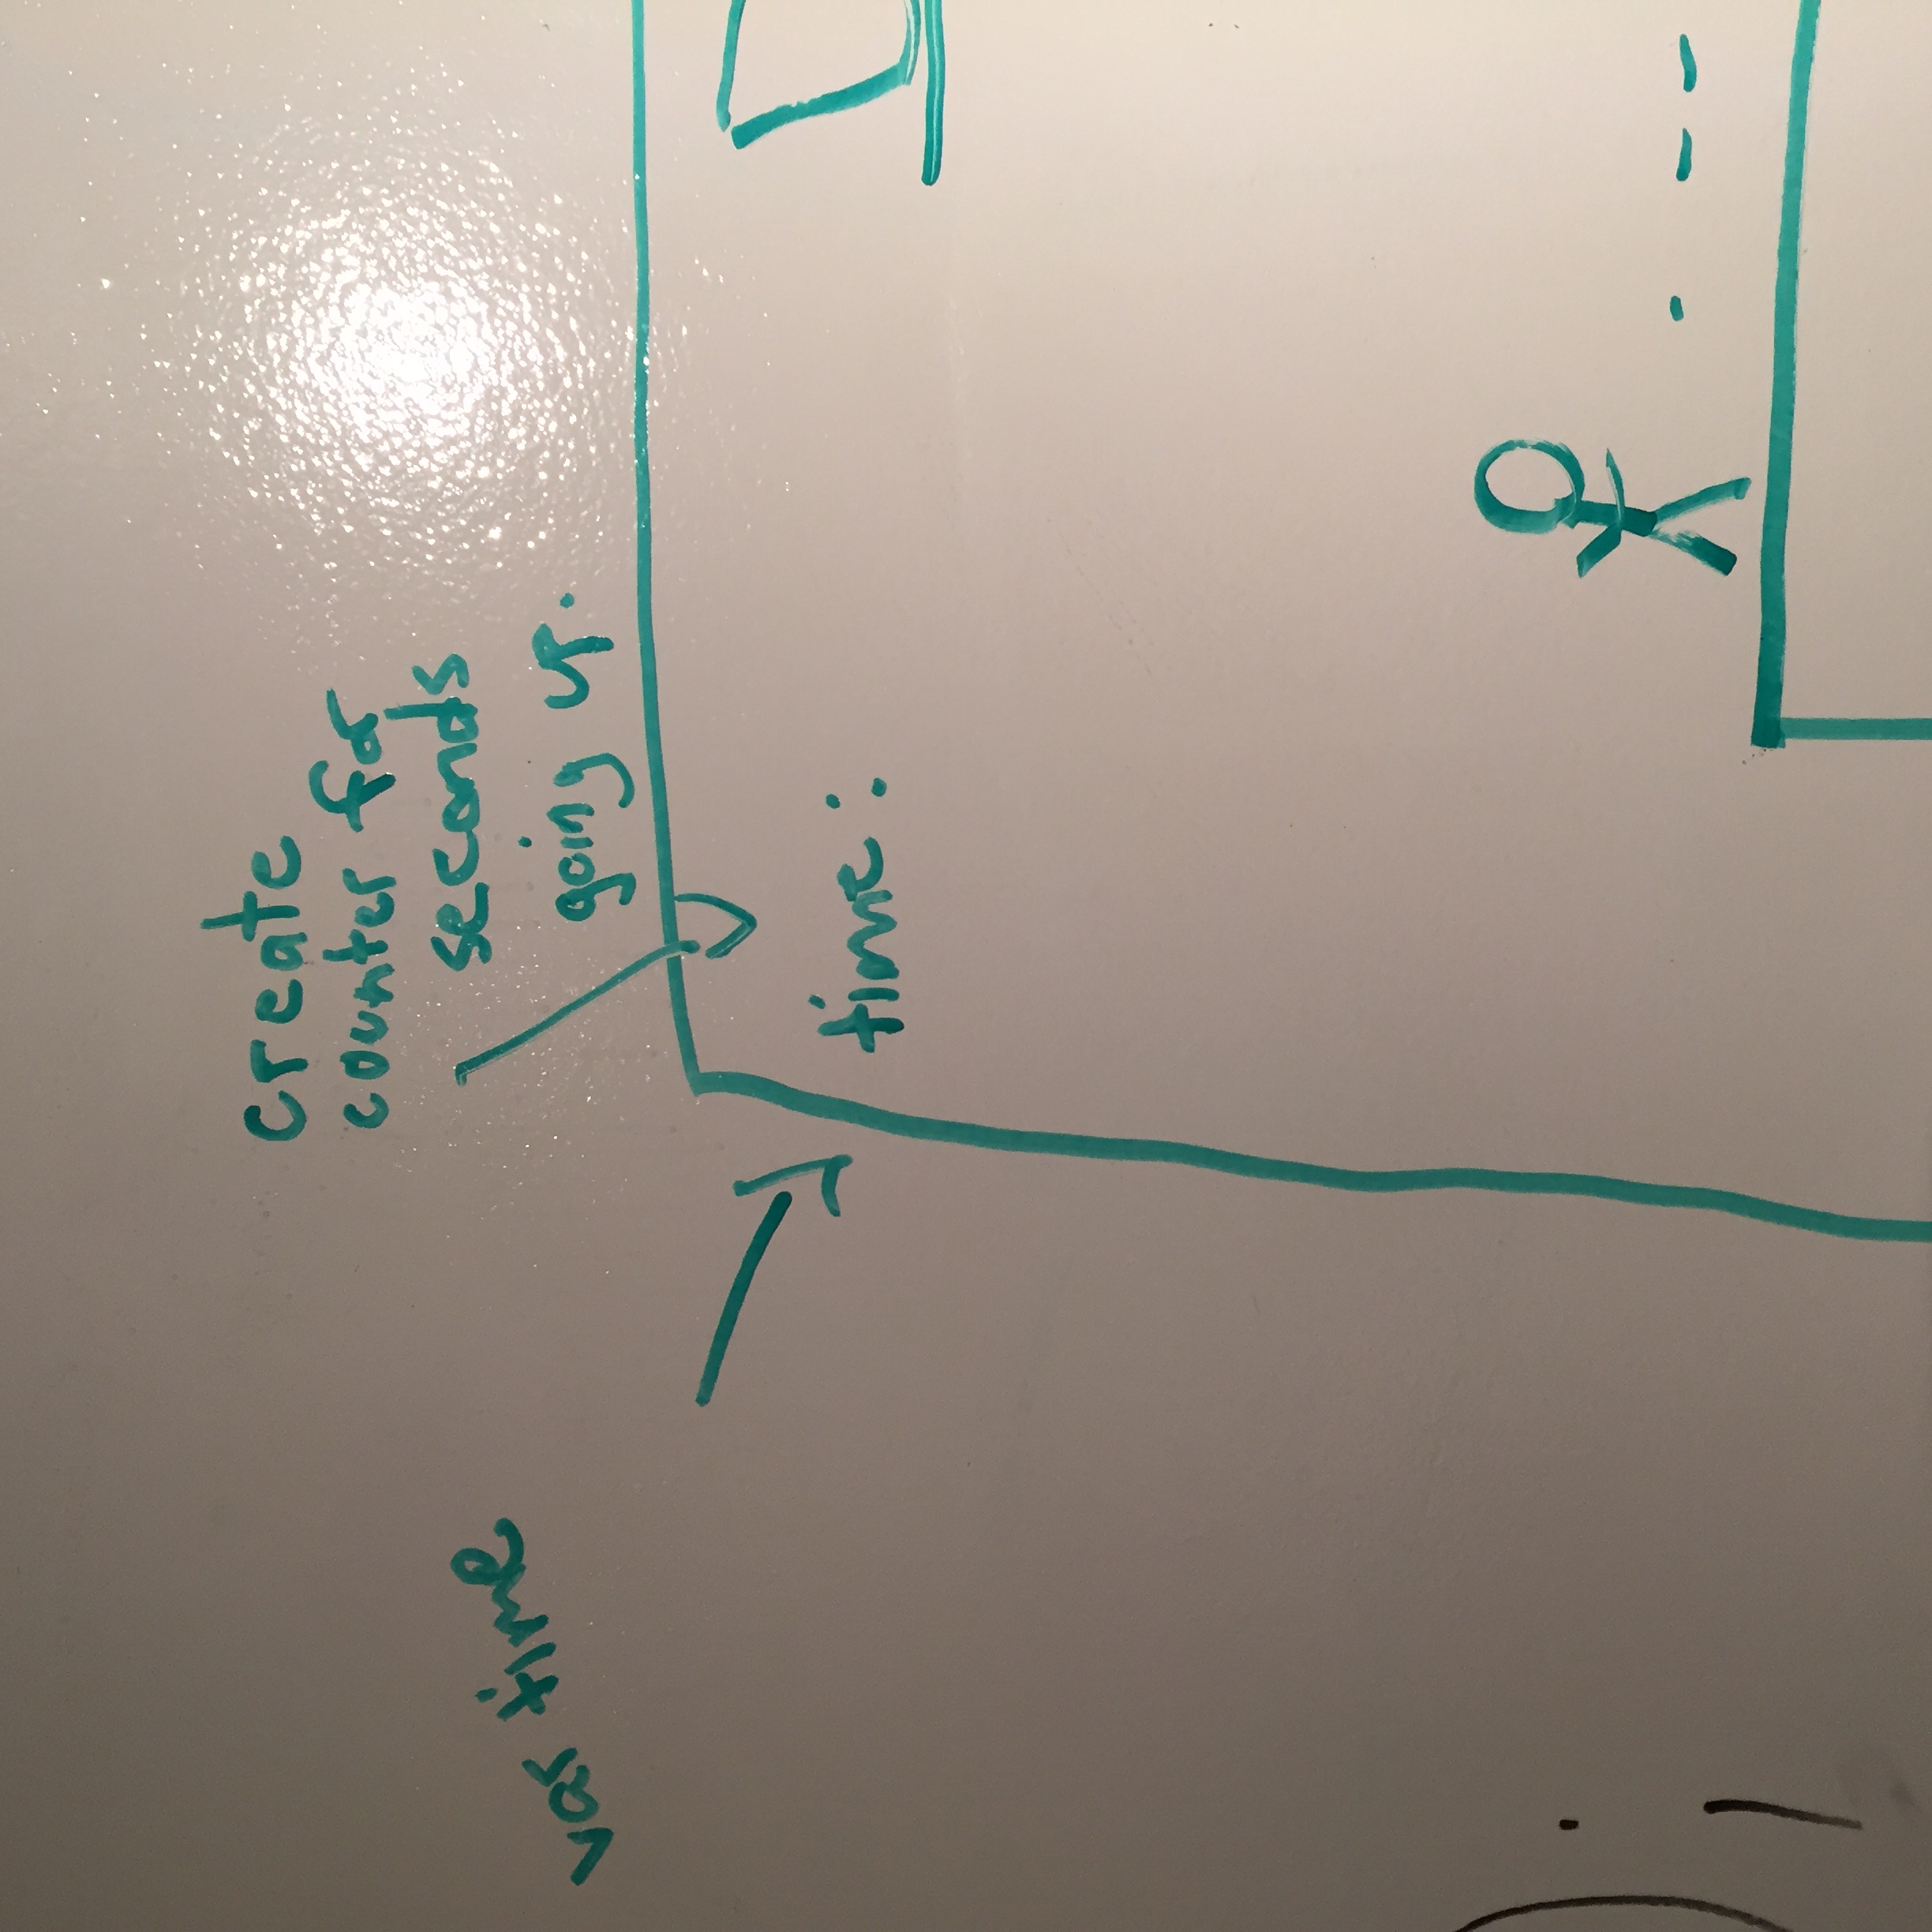 create
counter for
seconds
going up.
var time
time:
);